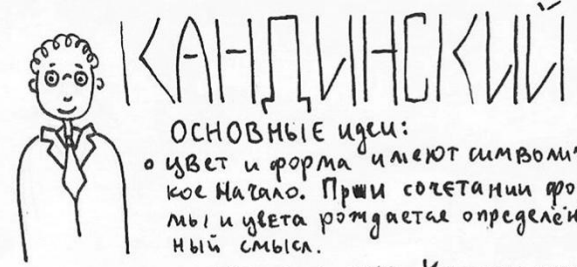 КАНДИНСКИЙ
ОСНОВНЫЕ идеи:
• цвет и форма имеют символич
кое начало. При сочетании фо
мы и цвета рождается определён
ный смысл.